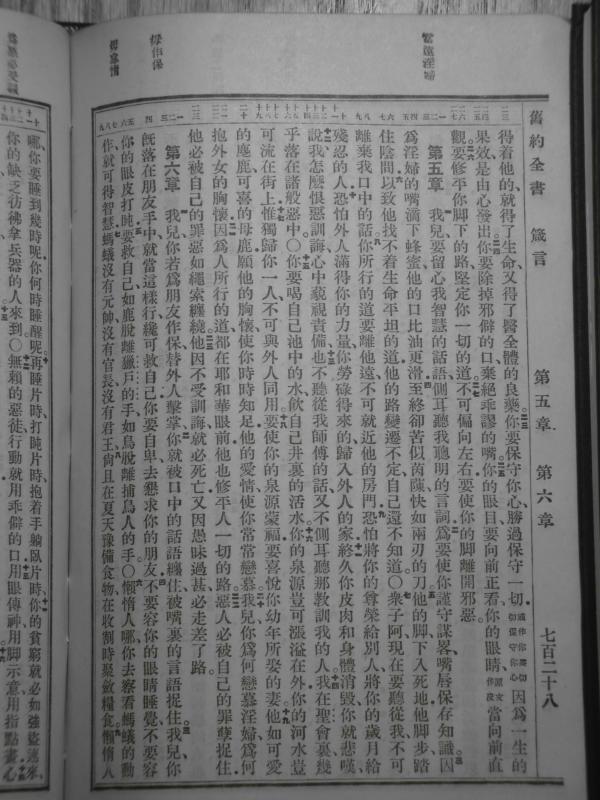 當遠淫婦
毋作保
毋怠惰
舊約全書 箴言 第五章 第六章 七百二十八
得着他的就得了生命又得了醫全體的良藥你要保守你心勝過保守一切或作你要切切保守你心因爲一生的
果效是由心發出你要除掉邪僻的口棄絕乖謬的嘴你的眼目要向前正看你的眼睛原文作皮當向前直
觀要修平你脚下的路堅定你一切的道不可偏向左右要使你的脚離開邪惡
第五章 我兒要留心我智慧的話語側耳聽我聰明的言詞爲要使你謹守謀畧嘴唇保存知識因
爲淫婦的嘴滴下蜂蜜他的口比油更滑至終却苦似茵蔯快如兩刃的刀他的脚下入死地他脚步踏
住陰間以致他找不着生命平坦的道他的路變遷不定自己還不知道〇衆子阿現在要聽從我不可
離棄我口中的話你所行的道要離他遠不可就近他的房門恐怕將你的尊榮給別人將你的歲月給
殘忍的人恐怕外人滿得你的力量你勞碌得來的歸入外人的家終久你皮肉和身體消毁你就悲嘆
說我怎麽恨惡訓誨心中藐視責備也不聽從我師傅的話又不側耳聽那教訓我的人我在聖會裏幾
乎落在諸般惡中〇你要喝自己池中的水飲自己井裏的活水你的泉源豈可漲溢在外你的河水豈
可流在街上惟獨歸你一人不可與外人同用要使你的泉源蒙福要喜悅你幼年所娶的妻他如可愛
的麀鹿可喜的母鹿願他的胸懷使你時時知足他的愛情使你常常戀慕我兒你爲何戀慕淫婦爲何
抱外女的胸懷因爲人所行的道都在耶和華眼前他也修平人一切的路惡人必被自己的罪孽捉住
他必被自己的罪惡如繩索纏繞他因不受訓誨就必死亡又因愚昧過甚必走差了路
第六章 我兒你若爲朋友作保替外人擊掌你就被口中的話語纏住被嘴裏的言語捉住我兒你
旣落在朋友手中就當這樣行纔可救自己你要自卑去懇求你的朋友不要容你的眼睛睡覺不要容
你的眼皮打盹要救自己如鹿脫離獵戶的手如鳥脫離捕鳥人的手〇懶惰人哪你去察看螞蟻的動
作就可得智慧螞蟻沒有元帥沒有官長沒有君王尙且在夏天豫備食物在收割時聚斂糧食懶惰人
哪你要睡到幾時呢你何時睡醒呢再睡片時打盹片時抱着手躺臥片時你的貧窮就必如強盜速來
你的缺乏彷彿拿兵器的人來到〇無賴的惡徒行動就用乖僻的口用眼傳神用脚示意用指點畫心